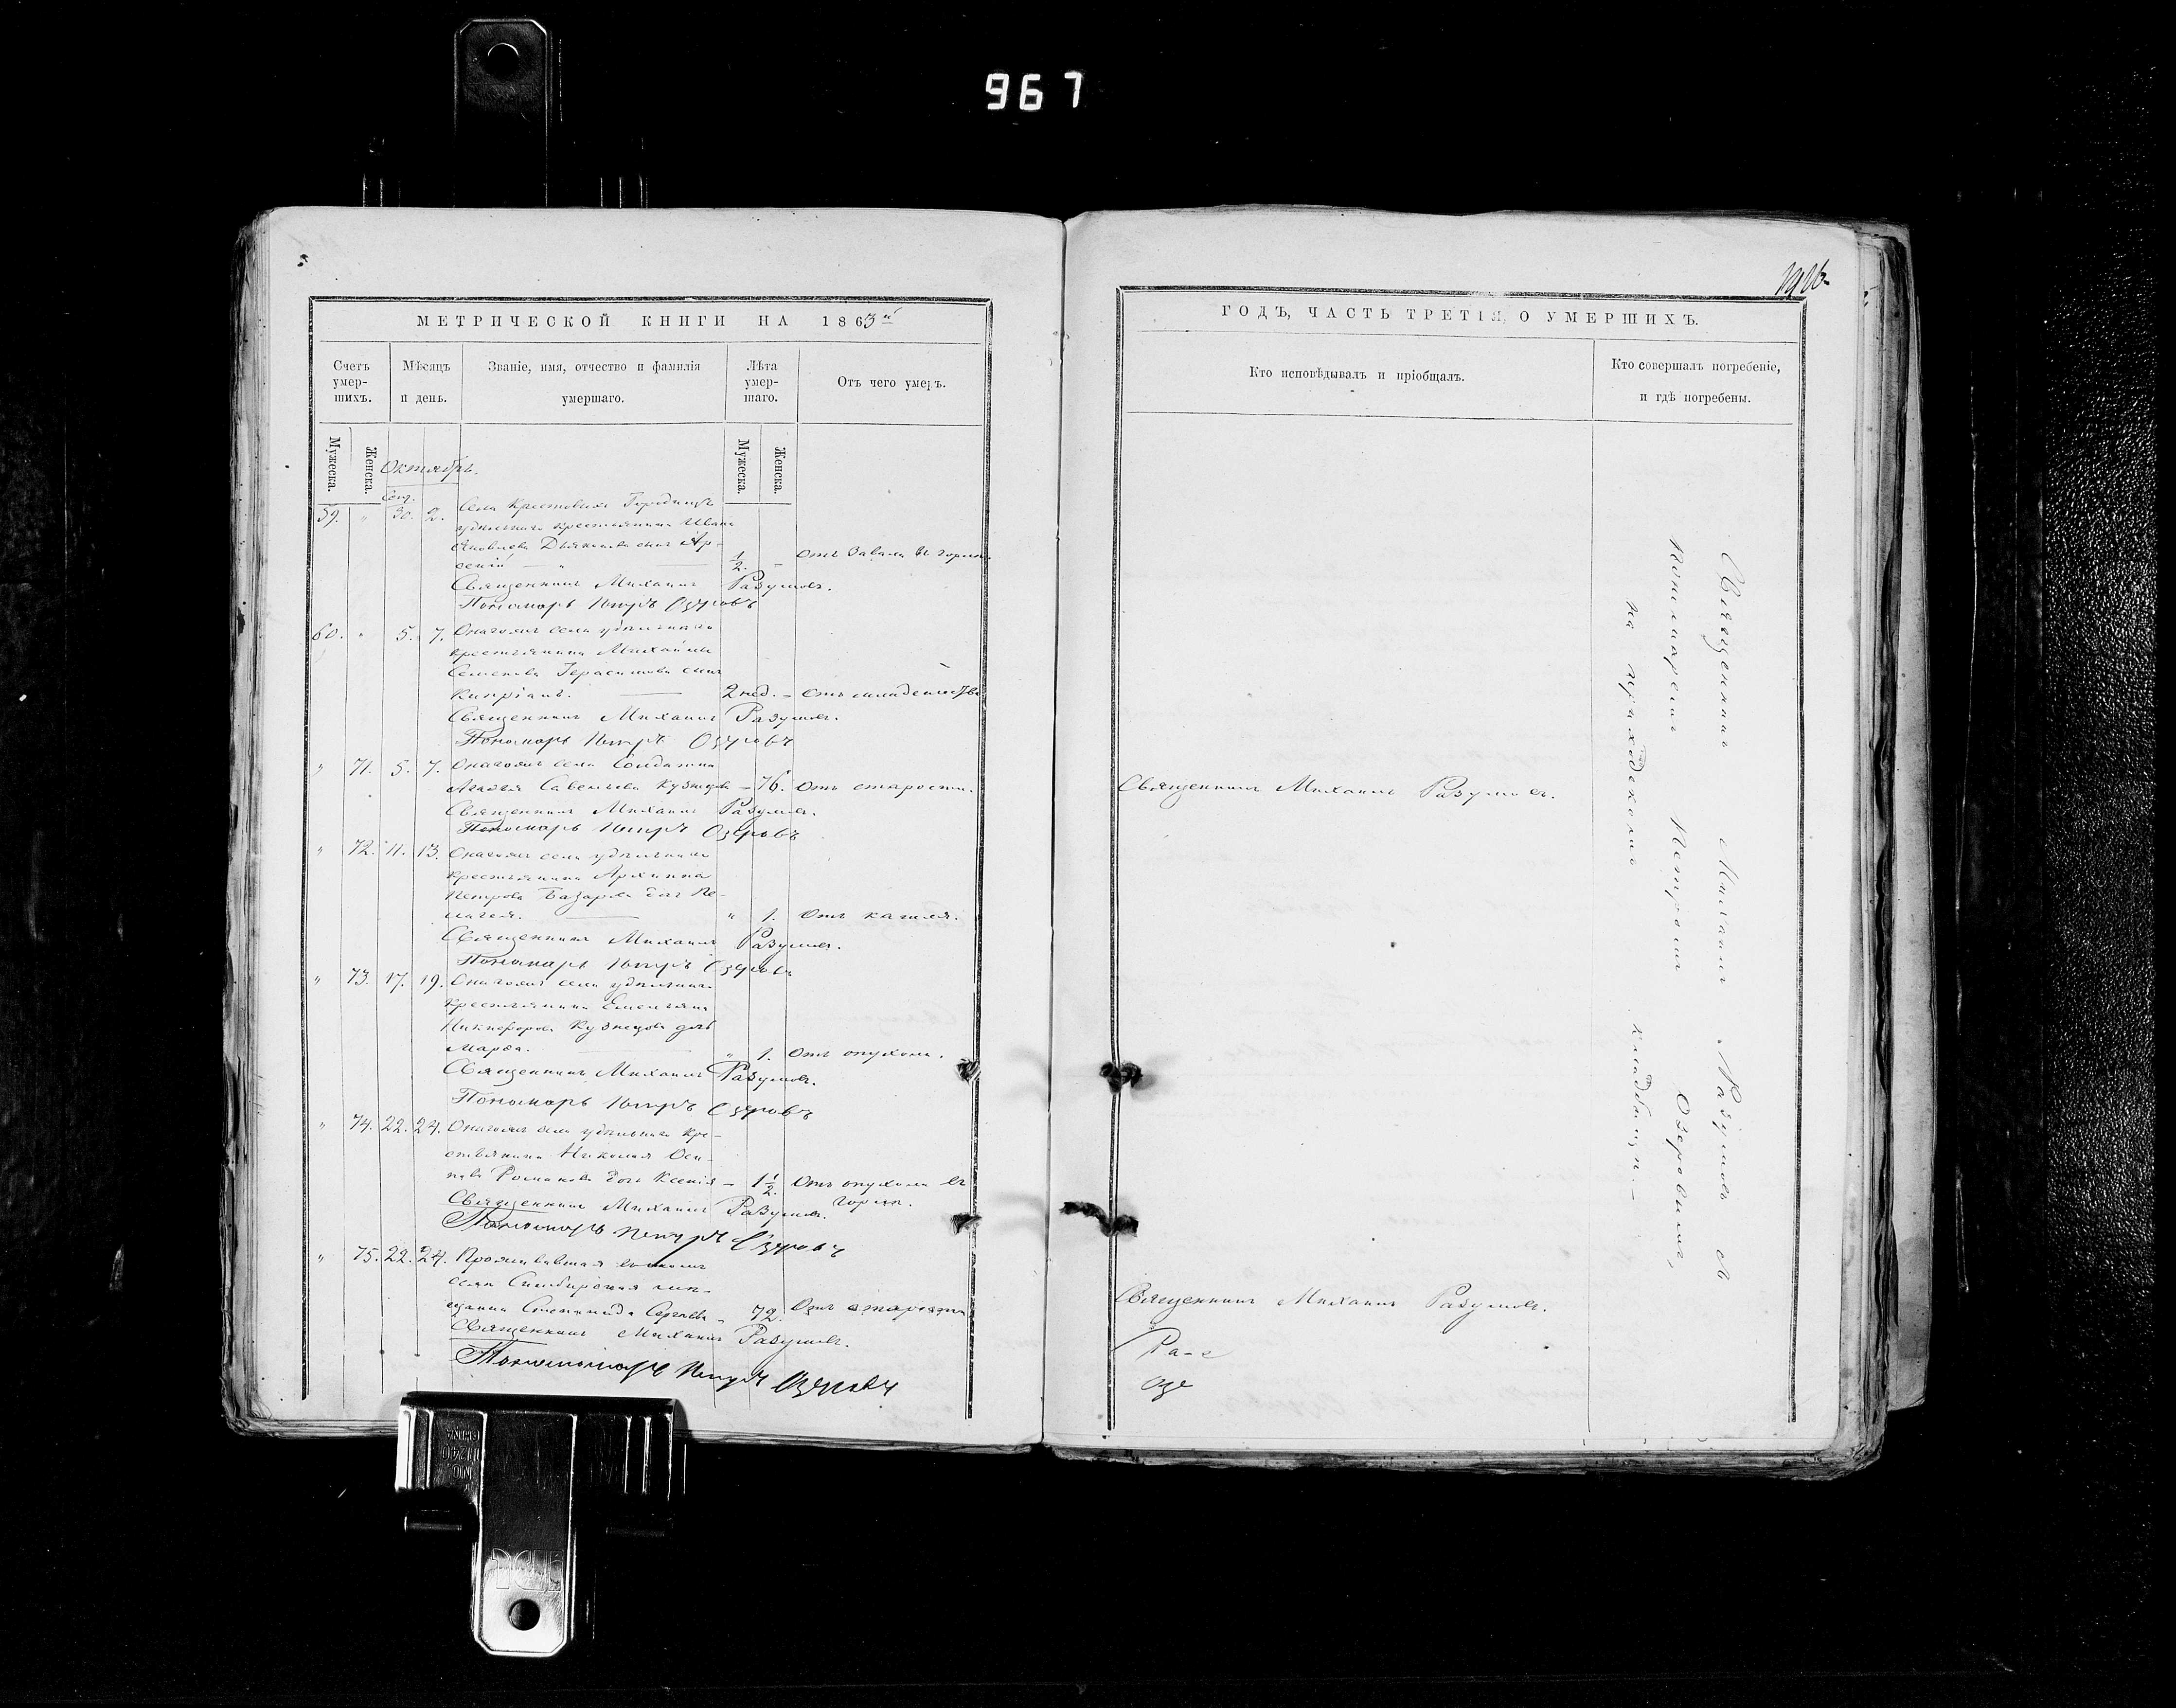 967
МЕТРИЧЕСКОЙ КНИГИ НА 1863й
Счетъ умер-шихъ.
Мѣсяцъ и день.
Званіе, имя, отчество и фамилія умершаго.
Лѣта умер-шаго.
Отъ чего умеръ.
Мужеска.
Женска.
Мужеска.
Женска.
Октябрь.
Сент.
59. " 30. 2. Села Крестовыхъ Городищъ
удѣльнаго крестьянина Ивана
Яковлева сынъ Ар-
сеній — " 1/2. - Отъ завала въ горлѣ.
Священникъ Михаилъ Разумовъ.
Пономарь Петръ Озеровъ
60. " 5. 7. Онагожъ села удѣльнаго
крестьянина Михайлы
Семенова Герасимова сынъ
Кипріанъ. — 2 нед. - Отъ младенчества
Священникъ Михаилъ Разумовъ.
Пономарь Петръ Озеровъ
" 71. 5. 7. Онагожъ села Солдатка
Агафья Савельева Кузнецова - 76. Отъ старости.
Священникъ Михаилъ Разумовъ.
Пономарь Петръ Озеровъ
" 72. 11. 13. Онагожъ села удѣльнаго
крестьянина Архипа
Петрова Базарова дочь Пе-
лагея. — " 1. Отъ кашля.
Священникъ Михаилъ Разумовъ.
Пономарь Петръ Озеровъ
" 73. 17. 19. Онагожъ села удѣльнаго
крестьянина Емельяна
Никифорова Кузнецова дочь
Марфа. — " 1. Отъ опухоли.
Священникъ Михаилъ Разумовъ.
Пономарь Петръ Озеровъ
" 74. 22. 24. Онагожъ села удѣльнаго кре-
стьянина Николая Оси-
пова Романова дочь Ксенія - 1 1/2. Отъ опухоли въ
горлѣ.
Священникъ Михаилъ Разумовъ.
Пономарь Петръ Озеровъ
" 75. 22. 24. Проживавшая въ ономъ
селѣ Симбирская мѣ-
щанка Степанида Сергѣева - 72. Отъ старости
Священникъ Михаилъ Разумовъ.
Пономарь Петръ Озеровъ
ГОДЪ, ЧАСТЬ ТРЕТІЯ, О УМЕРШИХЪ.
Кто исповѣдывалъ и пріобщалъ.
Кто совершалъ погребеніе,
и гдѣ погребены.
Священникъ Михаилъ Разумовъ.
Священникъ Михаилъ Разумовъ.
Священникъ Михаилъ Разумовъ съ
Пономаремъ Петромъ Озеровымъ,
на приходскомъ кладбищѣ. —